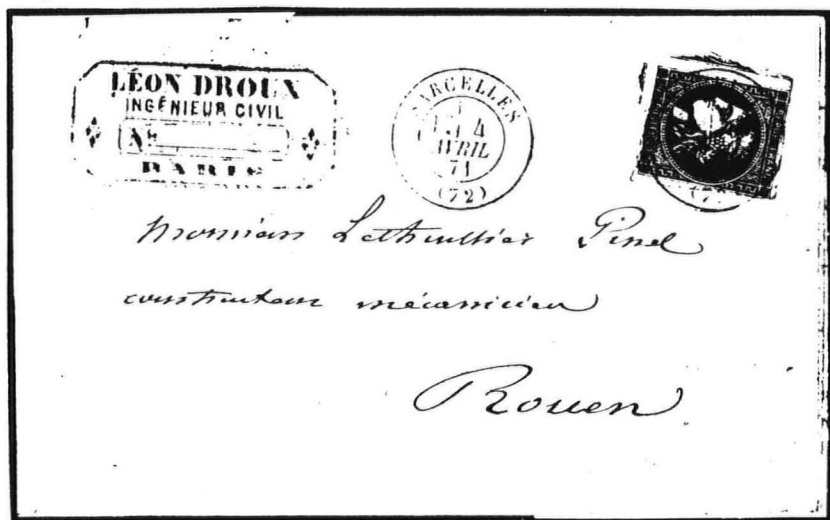 LÉON DROUX
INGÉNIEUR CIVIL
PARIS
SARCELLES
4
AVRIL
71
(72)
Monsieur Lethuillier Pinel
constructeur mécanicien
Rouen